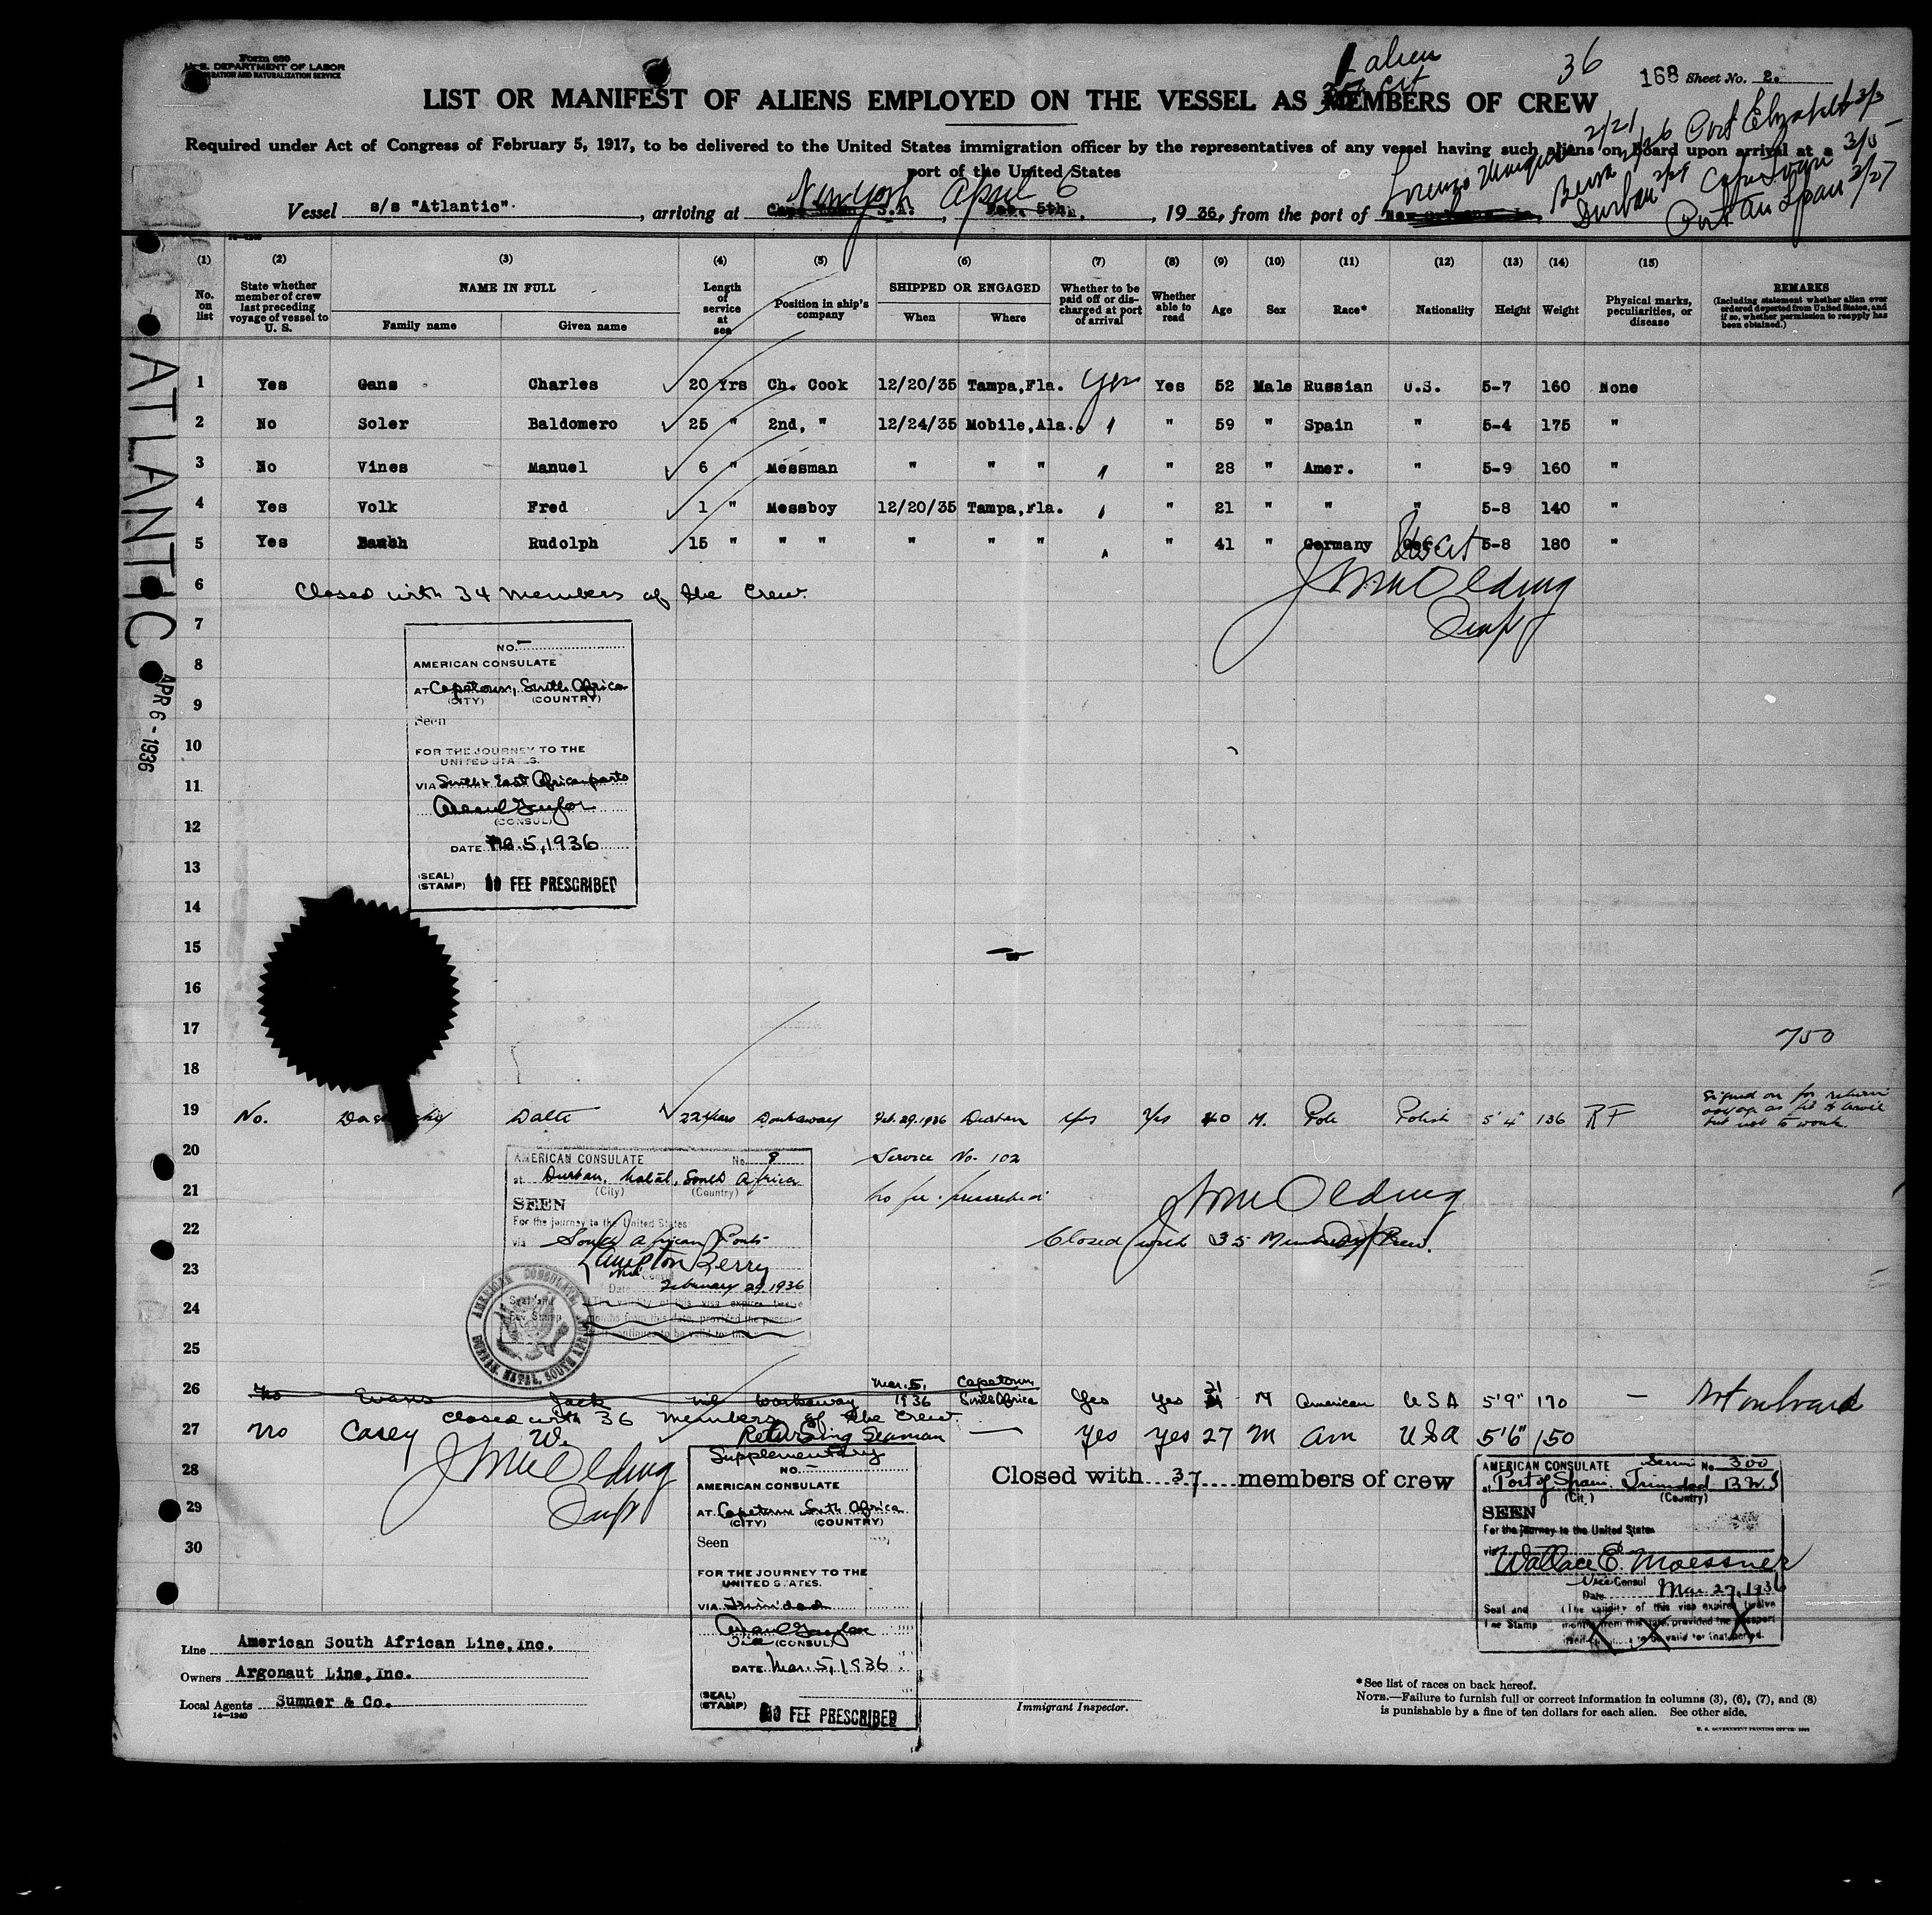 Form 680
U. S. DEPARTMENT OF LABOR
IMMIGRATION AND NATURALIZATION SERVICE
1 alien
36
168 Sheet No. 2.
LIST OR MANIFEST OF ALIENS EMPLOYED ON THE VESSEL AS MEMBERS OF CREW
Required under Act of Congress of February 5, 1917, to be delivered to the United States immigration officer by the representatives of any vessel having such aliens on board upon arrival at a
port of the United States
Lorenzo Marques 2/21 Beira 2/26 Port Elizabeth 3/3
Durban 2/29 Cape Town 3/5
Port au Spain 3/27
New York April 6
Vessel s/s "Atlantic". , arriving at Cape Town S.A. , Feb. 5th. , 1936, from the port of New Orleans, La.
(1) (2) (3) (4) (5) (6) (7) (8) (9) (10) (11) (12) (13) (14) (15)
No. on list
State whether member of crew last preceding voyage of vessel to U. S.
NAME IN FULL
Family name Given name
Length of service at sea
Position in ship's company
SHIPPED OR ENGAGED
When Where
Whether to be paid off or discharged at port of arrival
Whether able to read
Age
Sex
Race*
Nationality
Height
Weight
Physical marks, peculiarities, or disease
REMARKS
(Including statement whether alien ever ordered deported from United States, and if so, whether permission to reapply has been obtained.)
1 Yes Gans Charles 20 Yrs Ch. Cook 12/20/35 Tampa,Fla. Yes Yes 52 Male Russian U.S. 5-7 160 None
2 No Soler Baldomero 25 " 2nd, " 12/24/35 Mobile,Ala. " " 59 " Spain " 5-4 175 "
3 No Vines Manuel 6 " Messman " " " " " 28 " Amer. " 5-9 160 "
4 Yes Volk Fred 1 " Messboy 12/20/35 Tampa,Fla. " " 21 " " " 5-8 140 "
5 Yes Rudolph 15 " " " " " " " " 41 " Germany US Cit 5-8 180 "
6 Closed with 34 Members of the Crew.
J Wm Olding
7
NO.
AMERICAN CONSULATE
8
AT Capetown, South Africa
(CITY) (COUNTRY)
9
Seen
10
FOR THE JOURNEY TO THE
UNITED STATES.
11
VIA South & East African ports
12
(CONSUL)
DATE Feb. 5, 1936
13
(SEAL)
(STAMP) NO FEE PRESCRIBED
14
15
16
17
750
18
19 No. 22 years Workaway Feb. 29. 1936 Durban Yes Yes 40 M. Pole Polish 5'4" 136 RF
Signed on for return
voyage as fit to travel
but not to work.
20
AMERICAN CONSULATE No. 9
Service No. 102
at Durban, Natal, South Africa
(City) (Country)
21
No fee prescribed
SEEN
J Wm Olding
For the journey to the United States
22
via South African Ports
Closed with 35 Members Crew.
23
Consul
Date February 29. 1936
24
Seal and
Fee Stamp
(The validity of this visa expires twelve
months from this date, provided the passport
continues to be valid for that
AMERICAN CONSULATE
DURBAN, NATAL, SOUTH AFRICA
25
26 No Evans Jack nil Workaway Mar. 5, 1936 Capetown South Africa Yes Yes 21 M American USA 5'9" 170 — Not on board
Closed with 36 members of the Crew
27 no Casey W. Returning Seaman — Yes Yes 27 M Am USA 5'6" 150
J Wm Olding
28
Supplementary
NO.
AMERICAN CONSULATE
AT Capetown South Africa
(CITY) (COUNTRY)
Seen
FOR THE JOURNEY TO THE
UNITED STATES.
VIA Trinidad
(CONSUL)
DATE Mar. 5, 1936
(SEAL)
(STAMP) NO FEE PRESCRIBED
Closed with 37 members of crew
AMERICAN CONSULATE No. 300
at Port of Spain. Trinidad B.W.I
(City) (Country)
SEEN
For the journey to the United States
via
Wallace E. Moessner
Vice Consul
Date Mar 27, 1936
Seal and
Fee Stamp
(The validity of this visa expires twelve
months from this date, provided the passport
to be valid for that period.
29
30
Line American South African Line,Inc.
Owners Argonaut Line,Inc.
Local Agents Sumner & Co.
14—1240
Immigrant Inspector.
* See list of races on back hereof.
NOTE.—Failure to furnish full or correct information in columns (3), (6), (7), and (8)
is punishable by a fine of ten dollars for each alien. See other side.
ATLANTIC
APR 6 - 1936